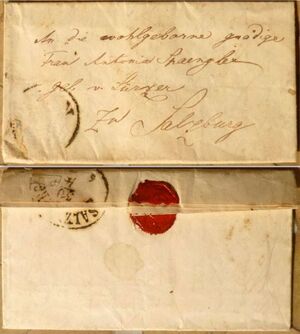 An die wohlgeborne gnädige
Frau Antonia Spaengler
geb. v Kürzer
Zu Salzburg
SALZ